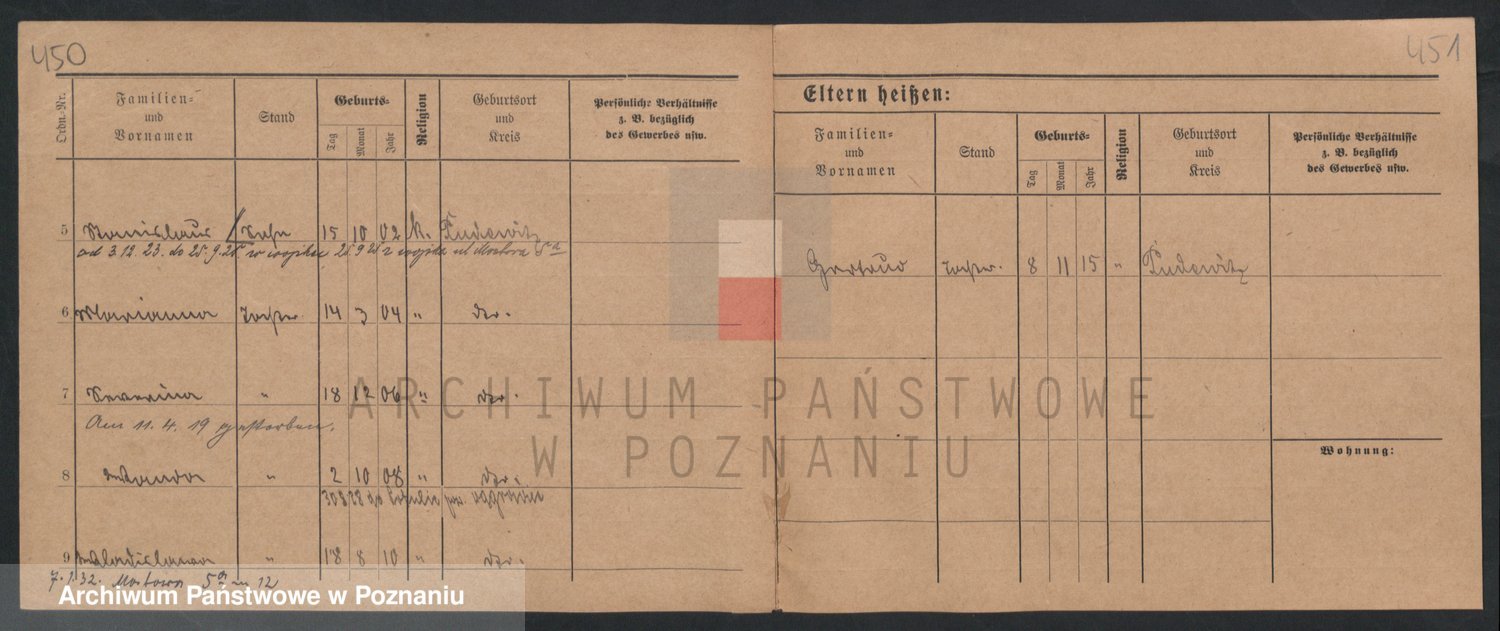 450
451
Ordn.-Nr.
Familien-
und
Vornamen
Stand
Geburts-
Tag
Monat
Jahr
Religion
Geburtsort
und
Kreis
Persönliche Verhältnisse
z. B. bezüglich
des Gewerbes usw.
5 Stanislaus Sohn 15 10 02 k. Pudewitz
od 3.12.23. do 25.9.25. w wojsku 25 9 25 z wojska ul Mostowa 5a
6 Marianna Tochter. 14 3 04 " dto.
7 Severina " 18 12 06 " dto.
Am 11. 4. 19 gestorben.
8 Wanda " 2 10 08 " dto.
30 8 28 do pow.
9 Wladislawa " 18 8 10 " dto.
7.1.32. Mostowa 5a m 12
Eltern heißen:
Familien-
und
Vornamen
Stand
Geburts-
Tag
Monat
Jahr
Religion
Geburtsort
und
Kreis
Persönliche Verhältnisse
z. B. bezüglich
des Gewerbes usw.
Gertrud Tochter. 8 11 15 " Pudewitz
Wohnung:
ARCHIWUM PAŃSTWOWE
W POZNANIU
Archiwum Państwowe w Poznaniu